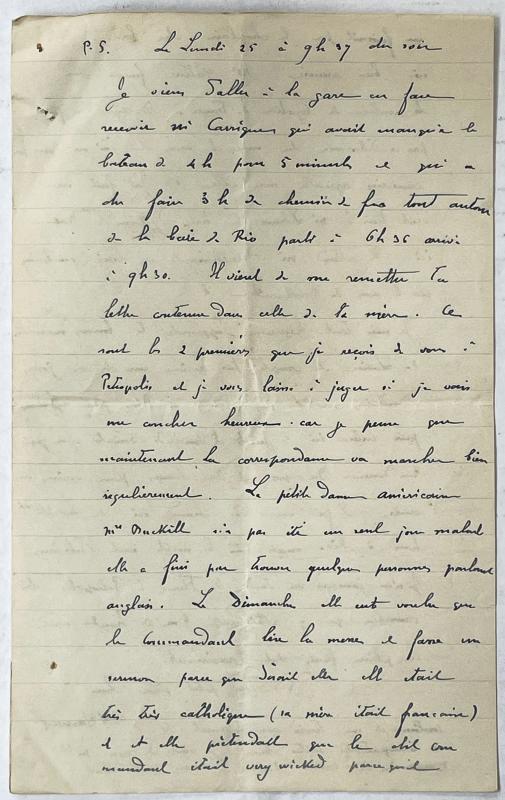 P.S. Le Lundi 25 à 9h 37 du soir
Je viens d'aller à la gare en face
recevoir Mr Carrigue qui avait manqué le
bateau de 4h pour 5 minutes et qui a
du faire 3h de chemin de fer tout autour
de la baie de Rio parti à 6h 36 arrivé
à 9h30. Il vient de me remettre Ta
lettre contenue dans celle de Ta mère. Ce
sont les 2 premières que je reçois de vous à
Petropolis et je vous laisse à juger si je vais
me coucher heureux. car je pense que
maintenant la correspondance va marcher bien
régulièrement. La petite Dame américaine
n'a pas été un seul jour malade
elle a fini par trouver quelques personnes parlant
anglais. Le Dimanche elle eut voulu que
le Commandant lise la messe et fasse un
sermon parce que disait elle elle était
très très catholique (sa mère était française)
et elle prétendait que le com
mandant était very wicked parce qu'il